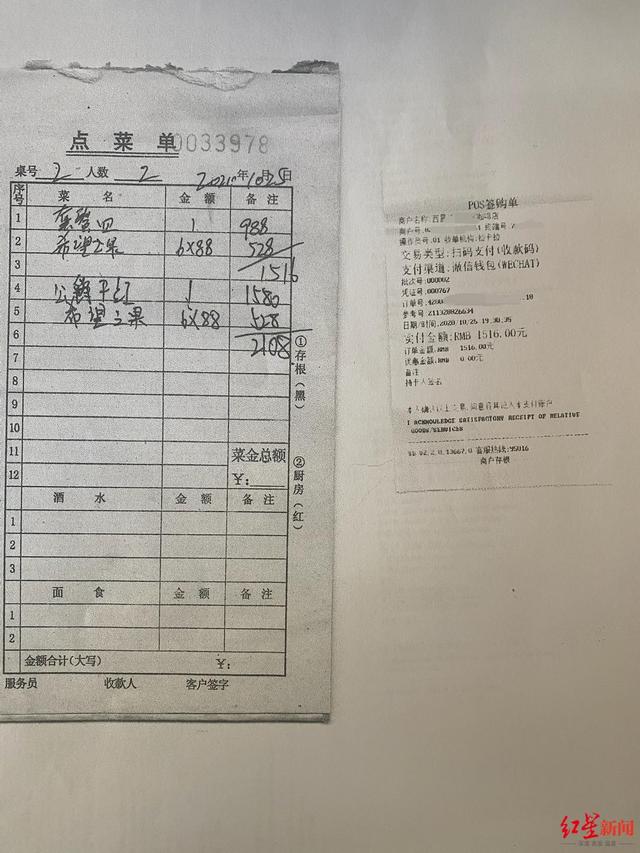 点菜单 0033978
桌号 2 人数 2 2020年10月25日
序号 菜名 金额 备注
1 套餐四 1 988
2 希望之果 6X88 528
3 1516
4 1 1580
5 希望之果 6X88 528
6 2108
7
8
9
10
11 菜金总额
12 ¥:
①存根(黑)
②厨房(红)
酒水 金额 备注
1
2
3
面食 金额 备注
1
2
金额合计(大写) ¥:
服务员 收款人 客户签字
POS签购单
商户名称:西 咖啡店
操作员号:01 收单机构:拉卡拉
交易类型:扫码支付(收款码)
支付渠道:微信钱包(WECHAT)
批次号:000002
凭证号:000767
参考号:211328826634
日期/时间:2020/10/25 19:30:35
实付金额:RMB 1516.00元
订单金额:RMB 1516.00元
优惠金额:RMB 0.00元
备注
持卡人签名
I ACKNOWLEDGE SATISFACTORY RECEIPT OF RELATIVE
GOODS/SERVICES
客服热线:95016
商户存根
红星新闻
深度 态度 温度